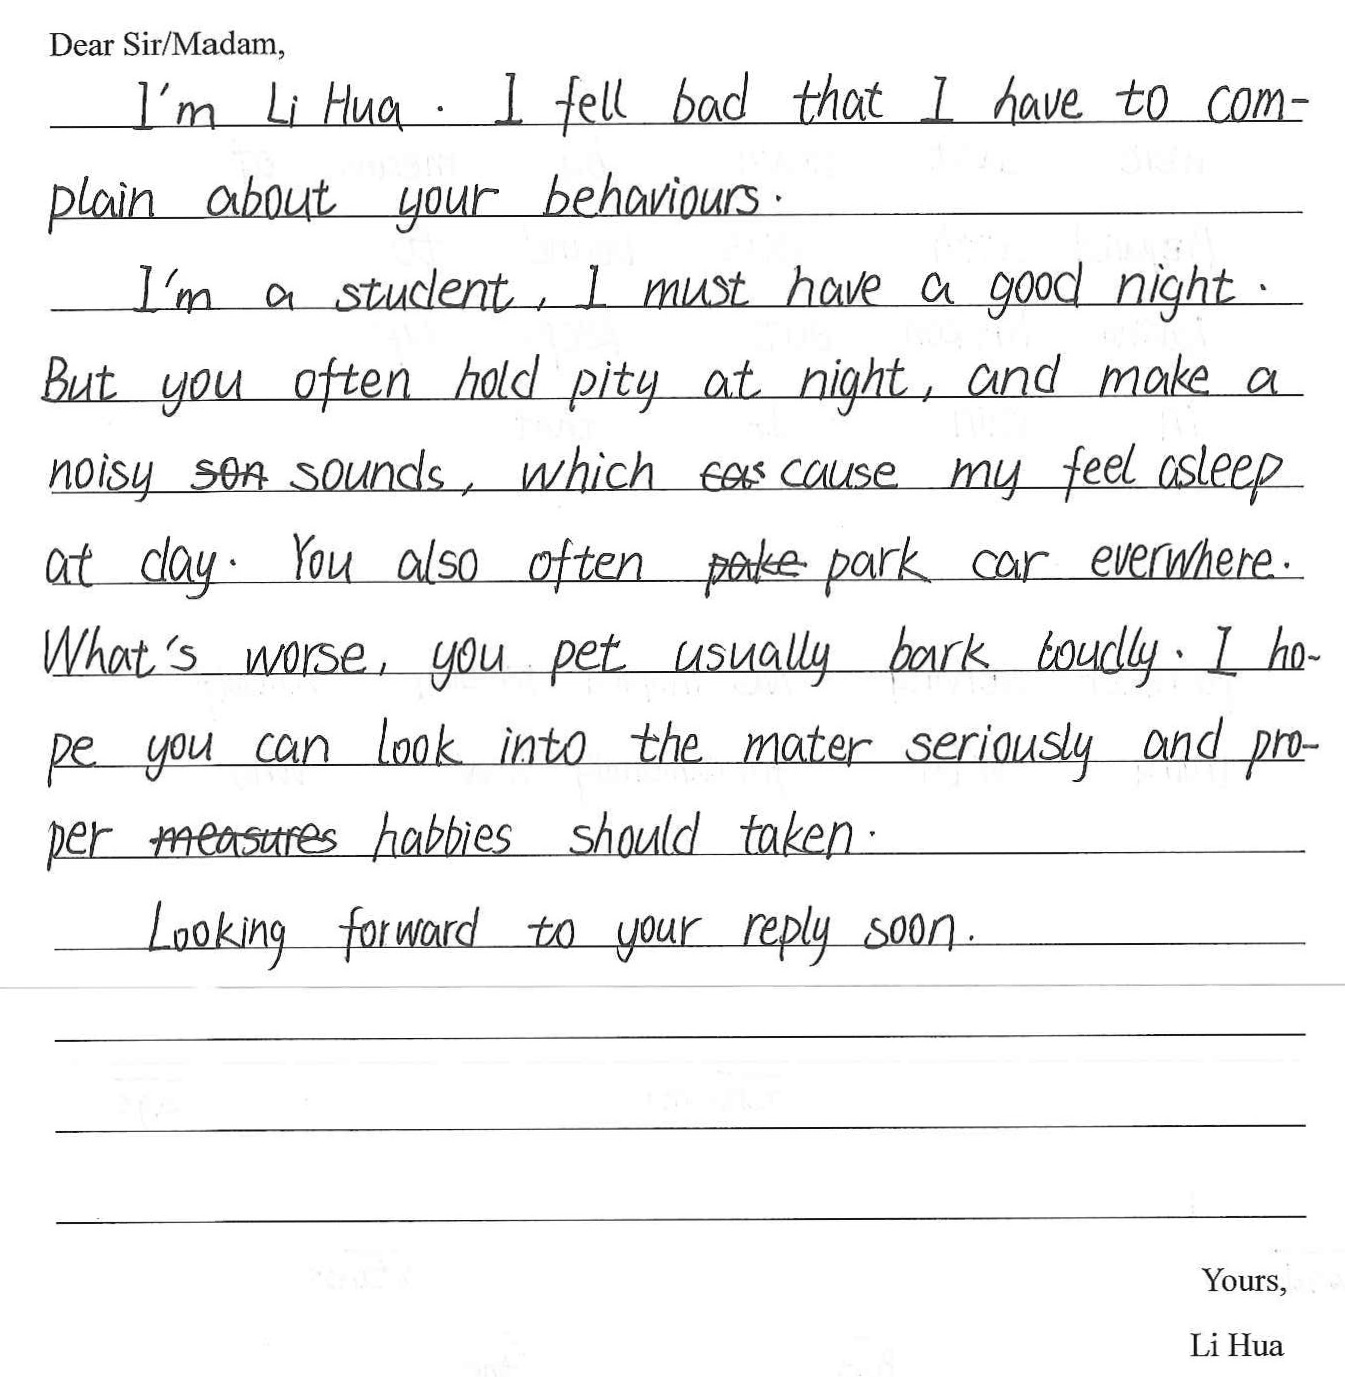 Dear Sir/Madam,
I'm Li Hua. I fell bad that I have to com-
plain about your behaviours.
I'm a student, I must have a good night.
But you often hold pity at night, and make a
noisy son sounds, which cas cause my feel asleep
at day. You also often pake park car everwhere.
What's worse, you pet usually bark loudly. I ho-
pe you can look into the mater seriously and pro-
per measures habbies should taken.
Looking forward to your reply soon.
Yours,
Li Hua